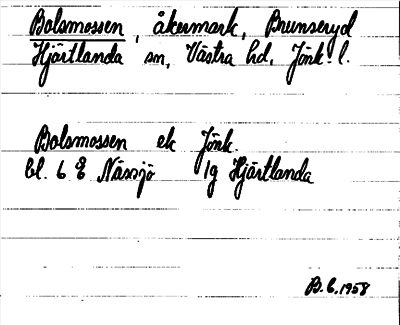 Bolsmossen, åkermark, Brunseryd
Hjärtlanda sn, Västra hd, Jönk. l.
Bolsmossen ek Jönk.
bl. 6 E Nässjö 1g Hjärtlanda
B.C. 1958